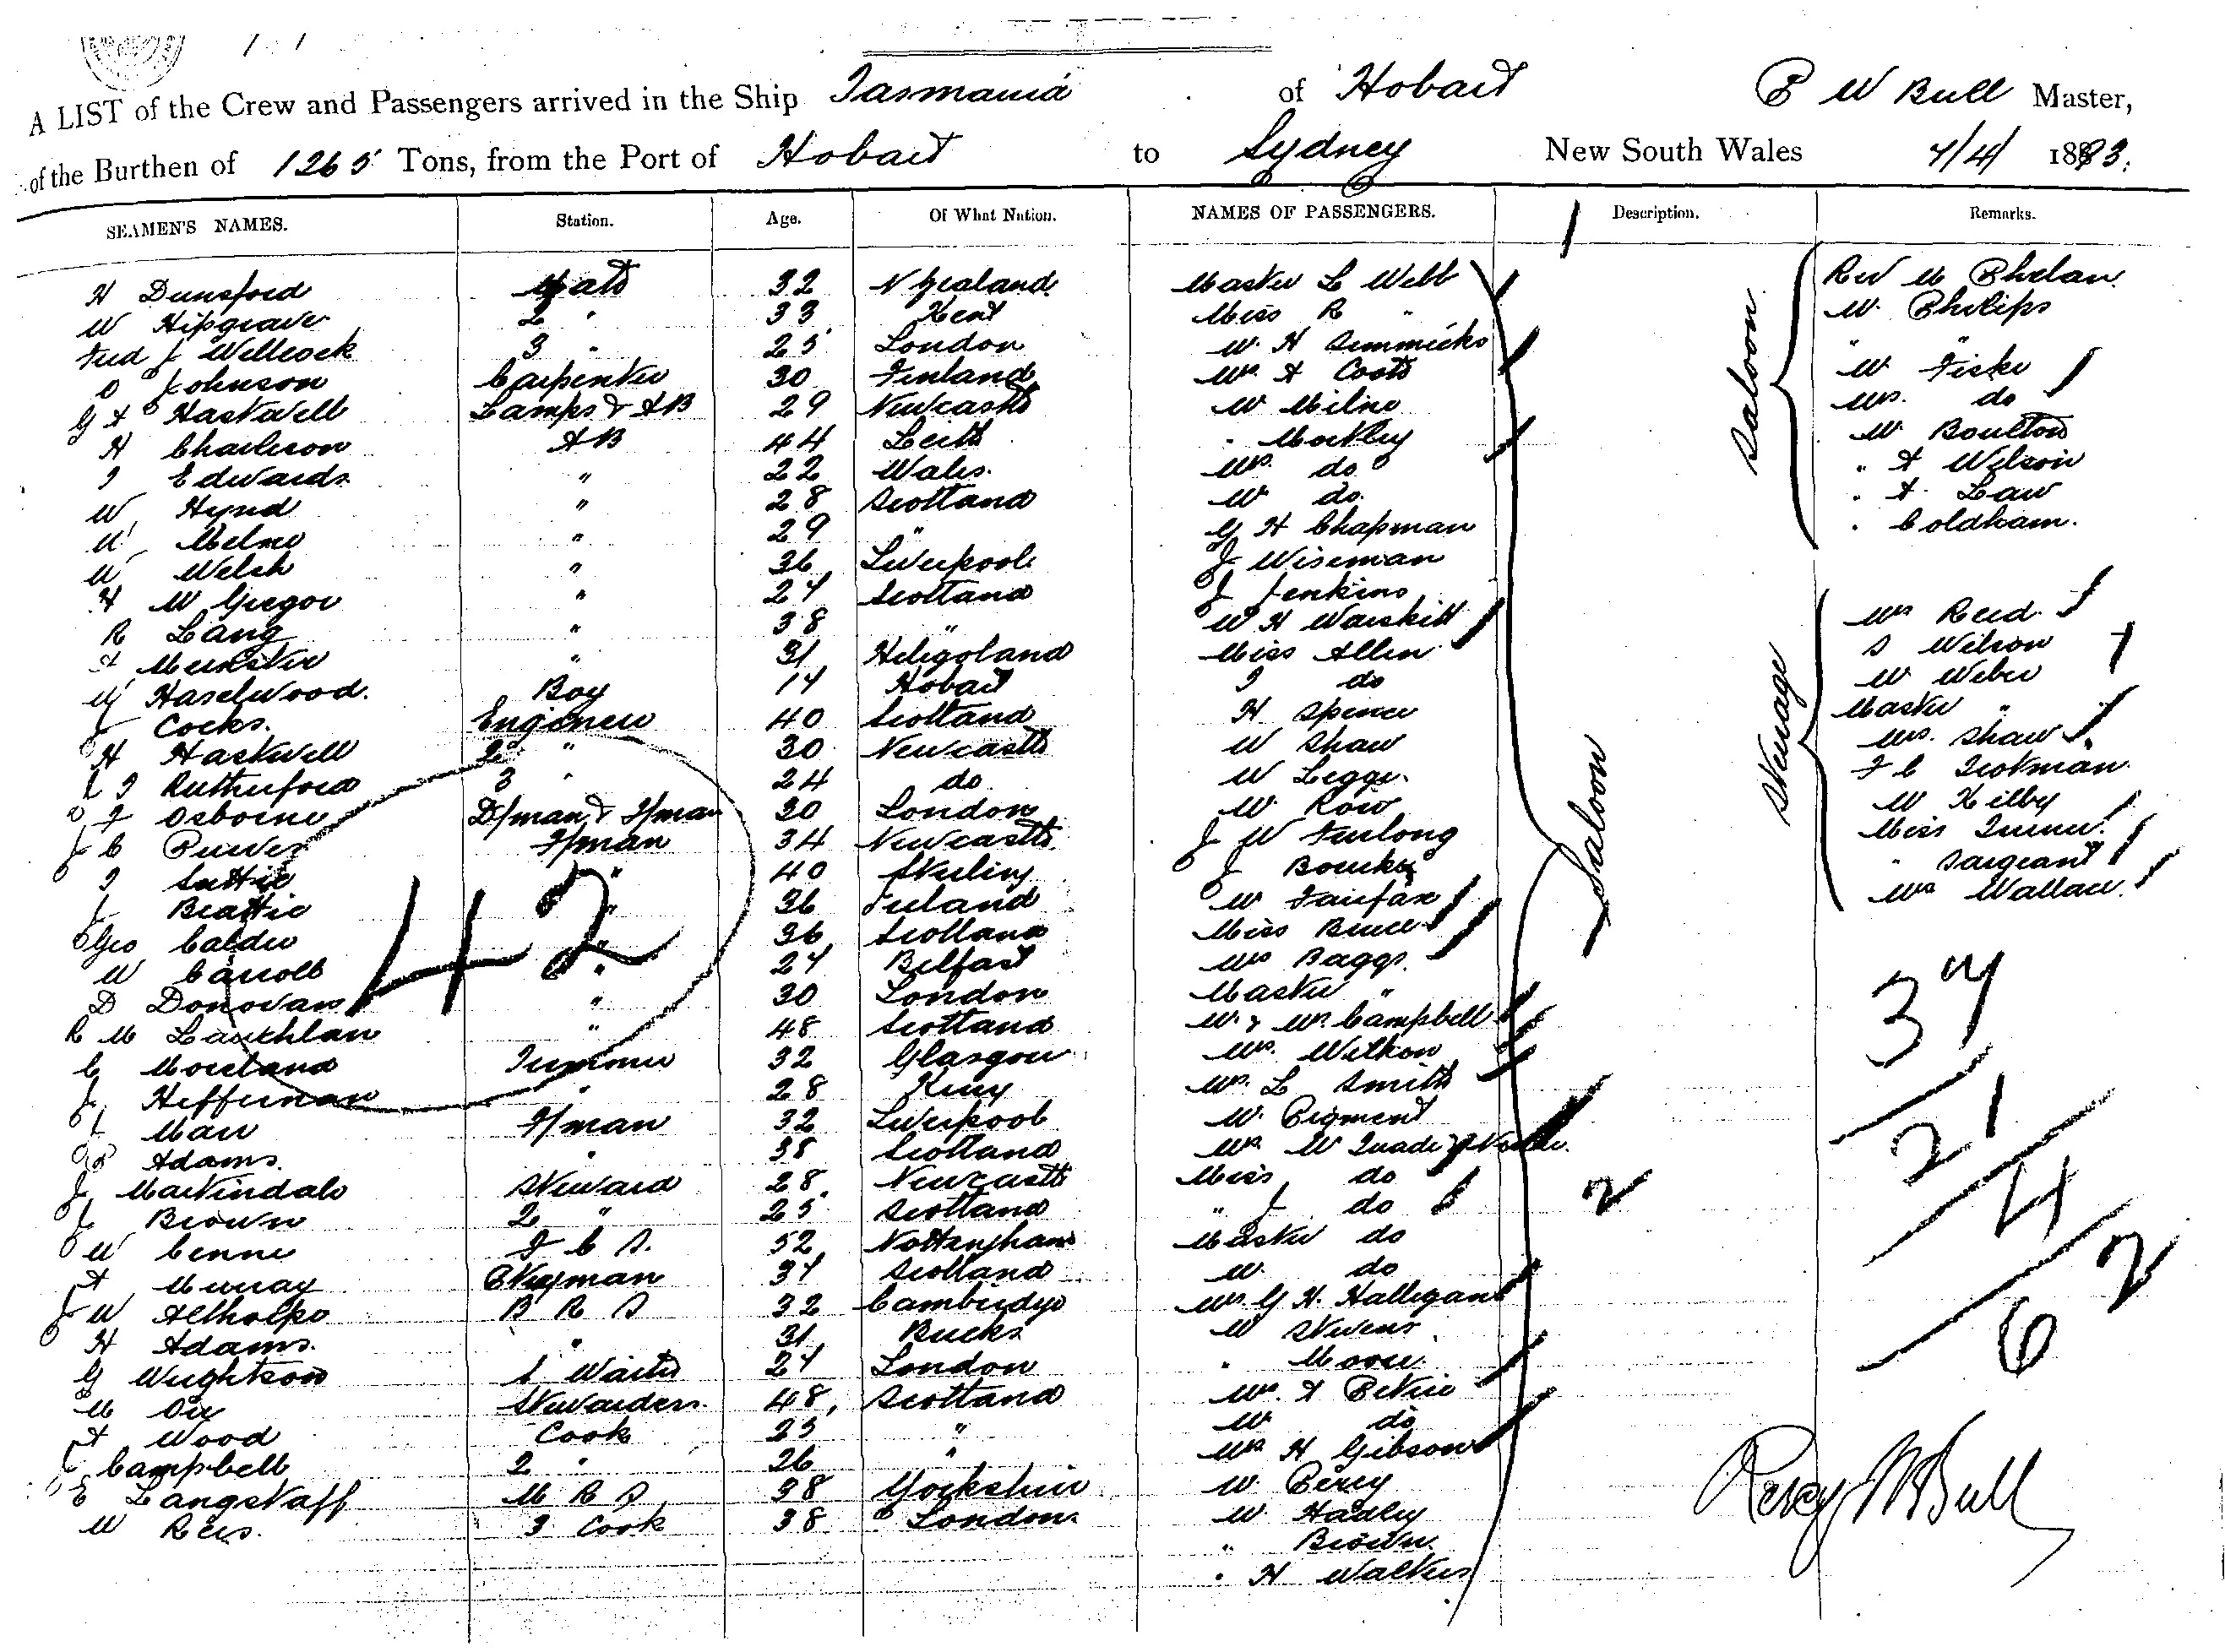 A LIST of the Crew and Passengers arrived in the Ship Tasmania of Hobart P W Bull Master,
of the Burthen of 1265 Tons, from the Port of Hobart to Sydney New South Wales 7/4/ 1893.
SEAMEN'S NAMES. Station. Age. Of What Nation. NAMES OF PASSENGERS. Description. Remarks.
H Dunsford Mate 32 N Zealand
W Hipgrave 2 " 33 Kent
Fred J Wellcock 3 " 25 London
O Johnson Carpenter 30 Finland
G A Haswell Lamps & AB 29 Newcastle
H Charleson AB 44 Leith
J Edwards " 22 Wales
W Hynd " 28 Scotland
W Milne " 29 "
W Welsh " 36 Liverpool
H Mc Gregor " 27 Scotland
R Lang " 38 "
A Munster " 31 Heligoland
W Haselwood Boy 17 Hobart
J Cocks Engineer 40 Scotland
H Haswell 2 " 30 Newcastle
T Rutherford 3 " 24 do
F Osborne D/man & F/man 30 London
J C Purves F/man 34 Newcastle
" 40 Stirling
J Beattie " 36 Ireland
Geo Calder " 36 Scotland
W Carroll " 27 Belfast
D Donovan " 30 London
R Mc Lauchlan " 48 Scotland
C Moreland Trimmer 32 Glasgow
J Heffernan " 28
J Marr F/man 32 Liverpool
Adams " 38 Scotland
J Martindale Steward 28 Newcastle
J Brown 2 " 25 Scotland
W 52 Nottingham
A Murray 37 Scotland
J W Althorpe B R S 32 Cambridge
H Adams " 31 Bucks
G Wrightson 1 Waiter 27 London
M Orr Stewardess 48 Scotland
A Wood Cook 25 "
J Campbell 2 " 26 "
E Langstaff 38 Yorkshire
W Rees 3 Cook 38 London
42
Master L Webb
Miss R "
Mr H Simmicks
Mrs A Coots
Mr Milne
" Mockley
Mrs do
Mr do
G H Chapman
J Wiseman
J Jenkins
Mr H Warskitt
Miss Allen
J do
H Spencer
W Shaw
W Legge
Mr Row
J W Furlong
J Bourke
Mr Fairfax
Miss Bruce
Mrs Baggs
Master "
Mr & Mrs Campbell
Mrs
Mrs L Smith
Mr Pigment
Mrs Mc
Miss do
" J do
Master do
Mr do
Mrs G H Halligan
Mr Stevens
" Moore
Mrs A Petrie
Mr do
Mrs H Gibson
Mr Percy
Mr Hadley
" Brown
" H Walters
Saloon
2
Saloon
Rev M Phelan
Mr Philips
" "
Mr Fiske
Mrs do
Mr Boulton
" A Wilson
" A Law
" Coldham
Steerage
Mrs Reid
S Wilson
Mr Weber
Master "
Mrs Shaw
F C Trotman
Mr Kilby
Miss Turner
" Sargeant
Mrs Wallace
37
21
4
62
Percy W Bull